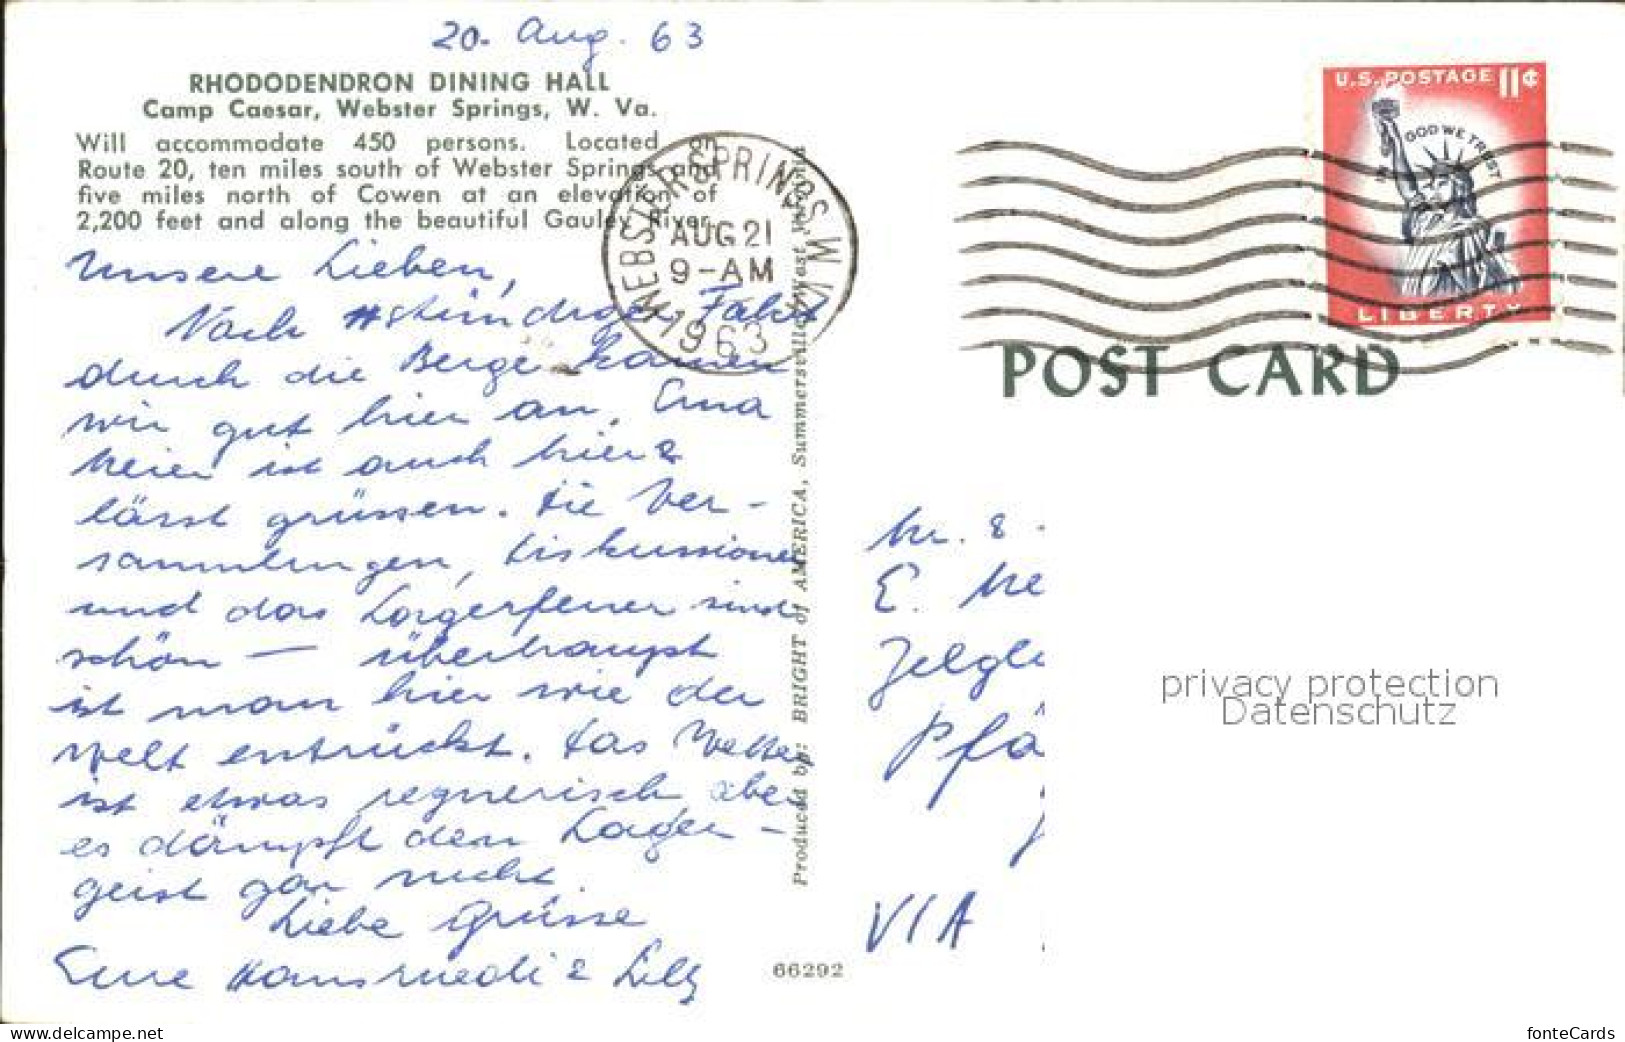 20. Aug. 63
RHODODENDRON DINING HALL
Camp Caesar, Webster Springs, W. Va.
Will accommodate 450 persons. Located on
Route 20, ten miles south of Webster Springs and
five miles north of Cowen at an elevation of
2,200 feet and along the beautiful Gauley River.
Unsere Lieben,
Nach stündiger Fahrt
durch die Berge kamen
wir gut hier an. Erna
Meier ist auch hier &
lässt grüssen. Die Ver-
sammlungen, Diskussionen
und das Lagerfeuer sind
schön — überhaupt
ist man hier wie der
Welt entrückt. Das Wetter
ist etwas regnerisch, aber
es dämpft den Lager-
geist gar nicht.
Liebe Grüsse
Eure Hansruedi & Lilly
WEBSTER SPRINGS W.VA.
AUG 21
9-AM
1963
Produced by: BRIGHT of AMERICA, Summersville, West Virginia
66292
U.S. POSTAGE 11¢
IN GOD WE TRUST
LIBERTY
POST CARD
E. Me
Zelgli
Pfä
VIA
privacy protection
Datenschutz
www.delcampe.net
fonteCards